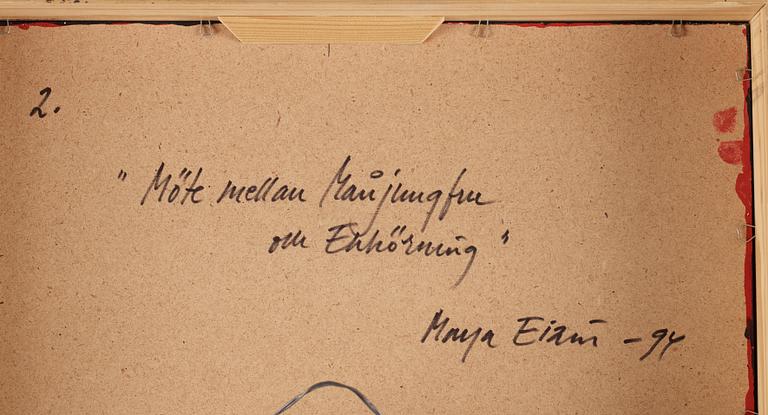 2.
"Möte mellan Månjungfru
och Enhörning"
Maya Eizin -94